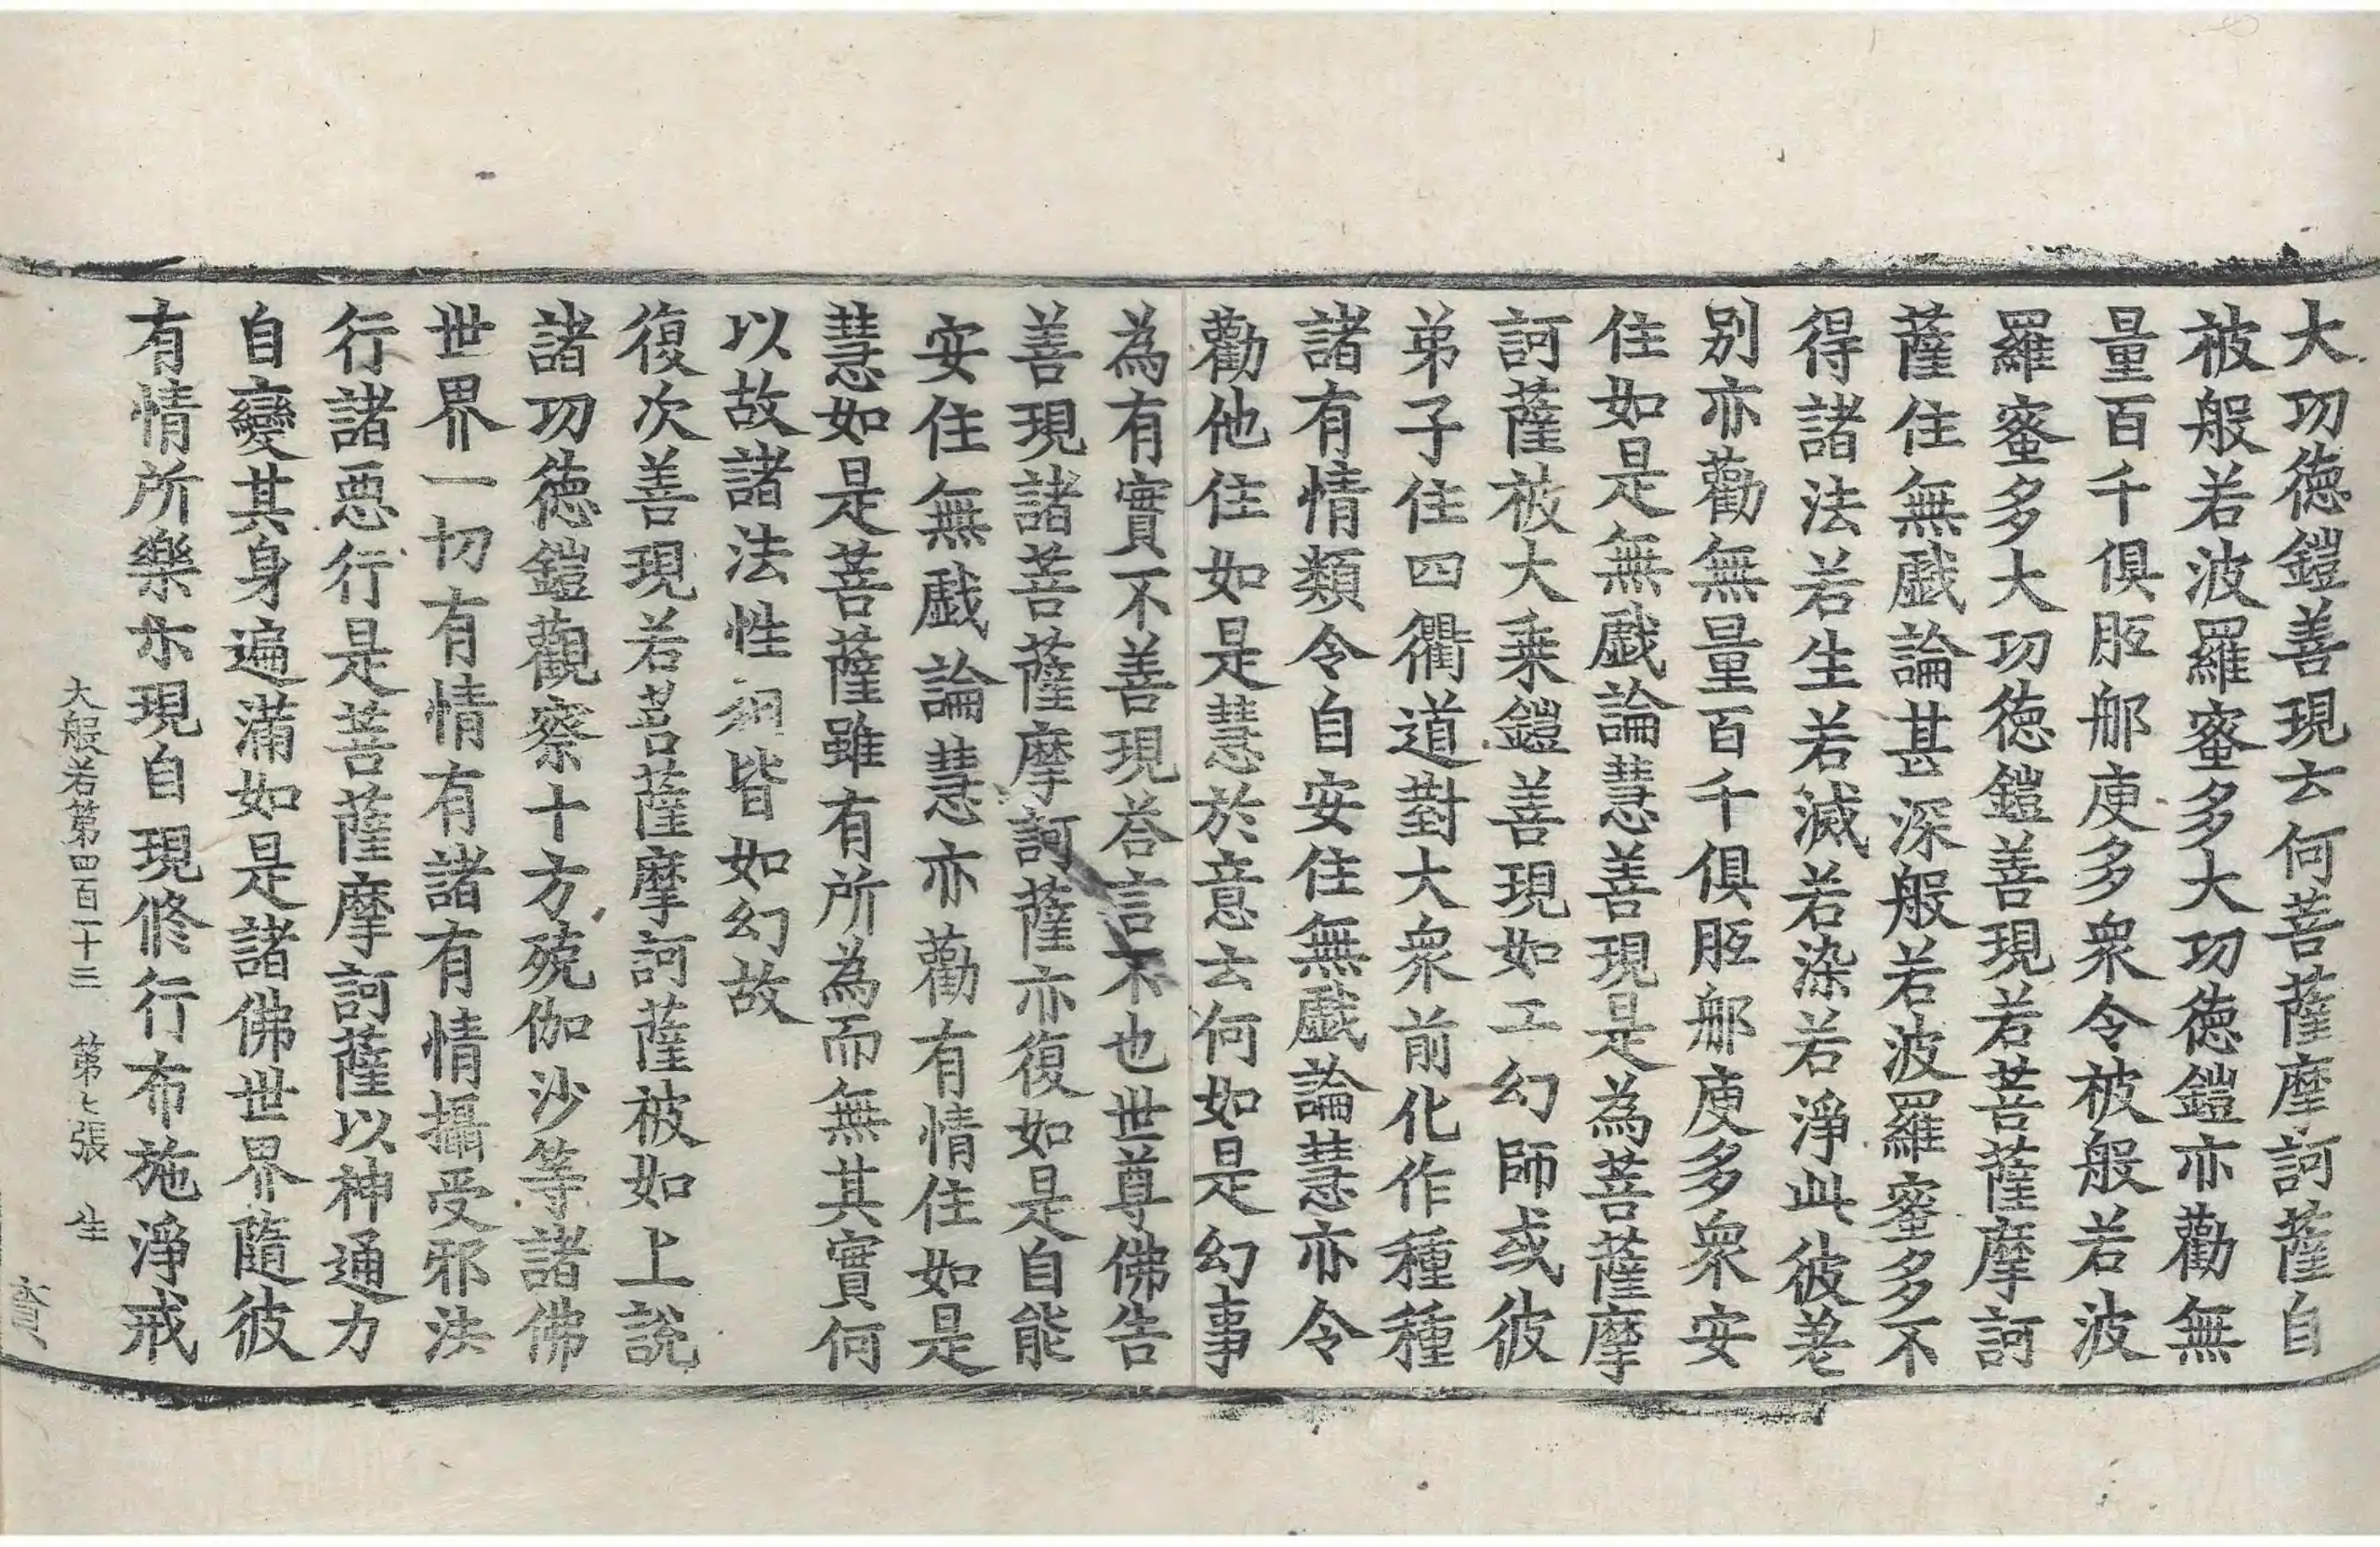 大功德鎧善現云何菩薩摩訶薩自
被般若波羅蜜多大功德鎧亦勸無
量百千俱胝那庾多衆令被般若波
羅蜜多大功德鎧善現若菩薩摩訶
薩住無戲論甚深般若波羅蜜多不
得諸法若生若滅若染若淨此彼差
別亦勸無量百千俱胝那庾多衆安
住如是無戲論慧善現是為菩薩摩
訶薩被大乘鎧善現如工幻師或彼
弟子住四衢道對大衆前化作種種
諸有情類令自安住無戲論慧亦令
勸他住如是慧於意云何如是幻事
為有實不善現荅言不也世尊佛告
善現諸菩薩摩訶薩亦復如是自能
安住無戲論慧亦勸有情住如是
慧如是菩薩雖有所為而無其實何
以故諸法性相皆如幻故
復次善現若菩薩摩訶薩被如上說
諸功德鎧觀察十方殑伽沙等諸佛
世界一切有情有諸有情攝受邪法
行諸惡行是菩薩摩訶薩以神通力
自變其身遍滿如是諸佛世界隨彼
有情所樂示現自現修行布施淨戒
大般若第四百一十三 第七張 生